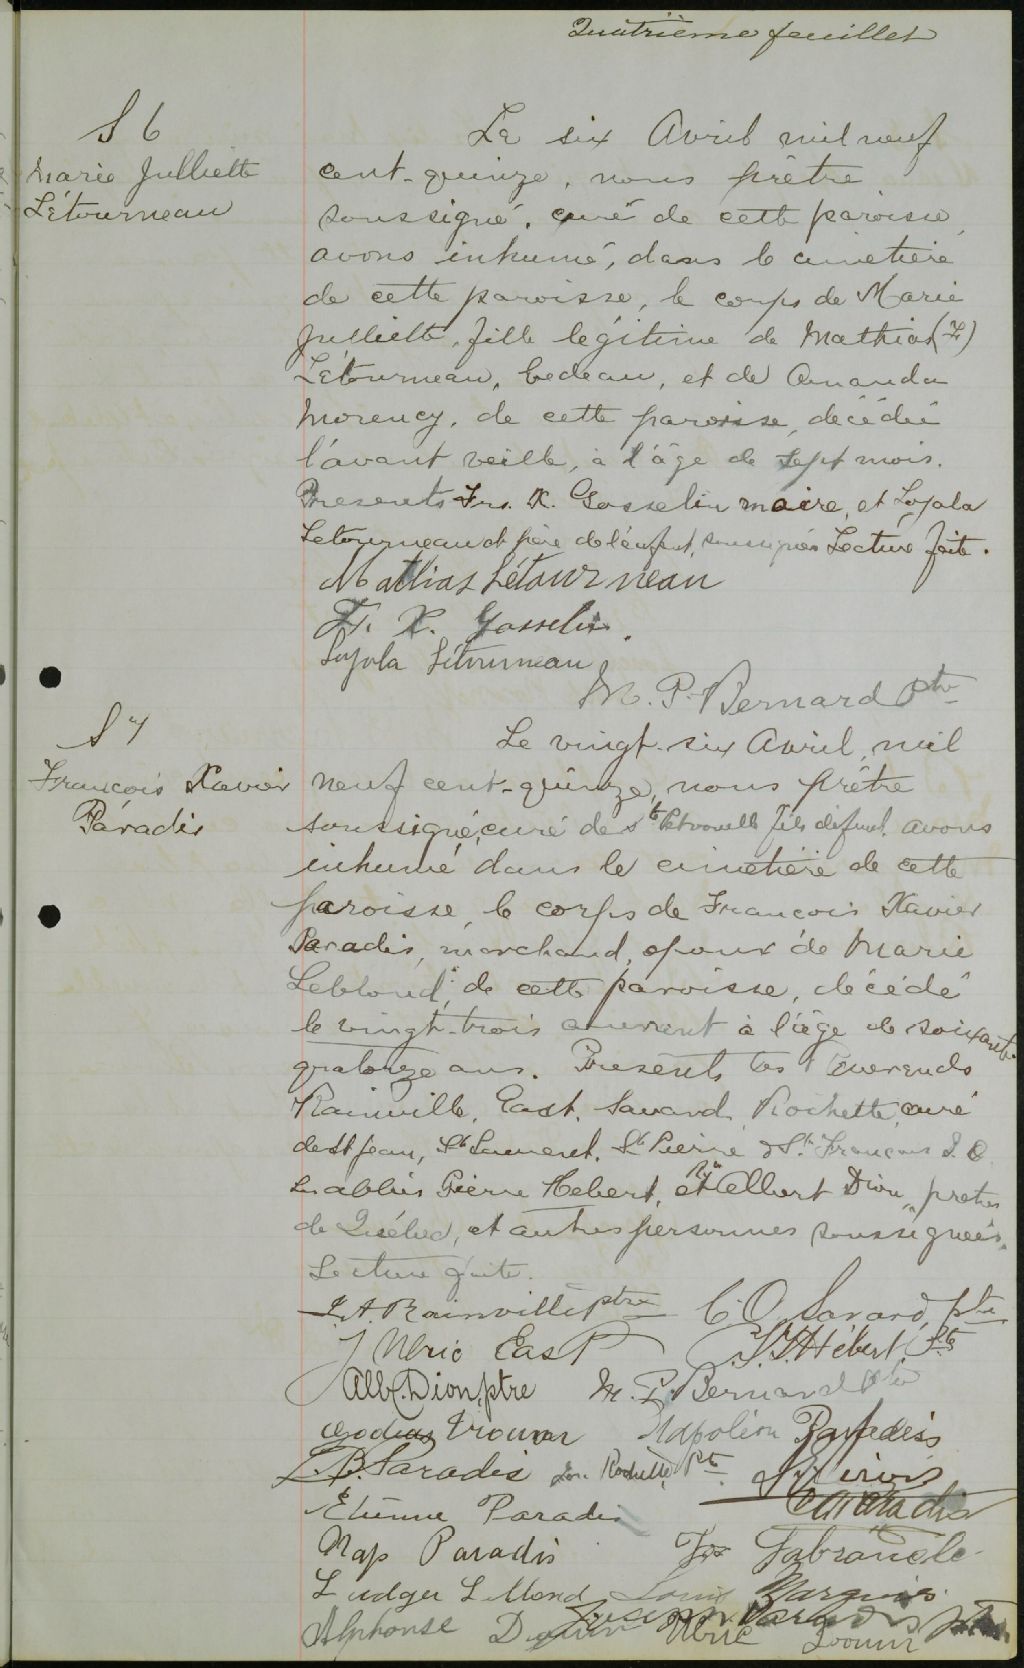 Quatrième feuillet
S 6
Marie Julliette
Létourneau
Le six Avril mil neuf
cent-quinze, nous prêtre
soussigné, curé de cette paroisse,
avons inhumé, dans le cimetière
de cette paroisse, le corps de Marie
Julliette, fille légitime de Mathias
Létourneau, bedeau, et de Amanda
Morency, de cette paroisse, décédée
l'avant veille, à l'âge de sept mois.
Presents Frs. X. Gosselin maire, et Loyola
Letourneau et père de l'enfant, soussignés Lecture faite.
Mathias Létourneau
F. X. Gosselin.
Loyola Létourneau
M. P. Bernard Ptre
S 7
François Xavier
Paradis
Le vingt-six Avril, mil
neuf cent-quinze, nous prêtre
soussigné, curé de Ste Pétronille fils défunt avons
inhumé dans le cimetière de cette
paroisse, le corps de François Xavier
Paradis, marchand, epoux de Marie
Leblond, de cette paroisse, décédé
le vingt-trois courant à l'âge de soixante
quatorze ans. Presents les Reverends
Rainville, East, Savard, Rochette, curé
de St Jean, St Laurent, St Pierre & St François I. O.
les abbés Pierre Hébert, et Albert Dion, pretres
de Québec, et autres personnes soussignées.
Lecture faite.
J. A. Rainville ptre C. O. Savard, ptre
J Ulric East P J. T. Hébert Ptre
Alb. Dion, ptre M. P. Bernard Ptre
Drouin Napoléon Paradis
L. B. Paradis Jos. Rochette Ptre
Paradis
Etienne Paradis
Nap Paradis
Ludger Leblond Louis Marquis
Joseph Paradis
Alphonse Drouin Ulric Drouin